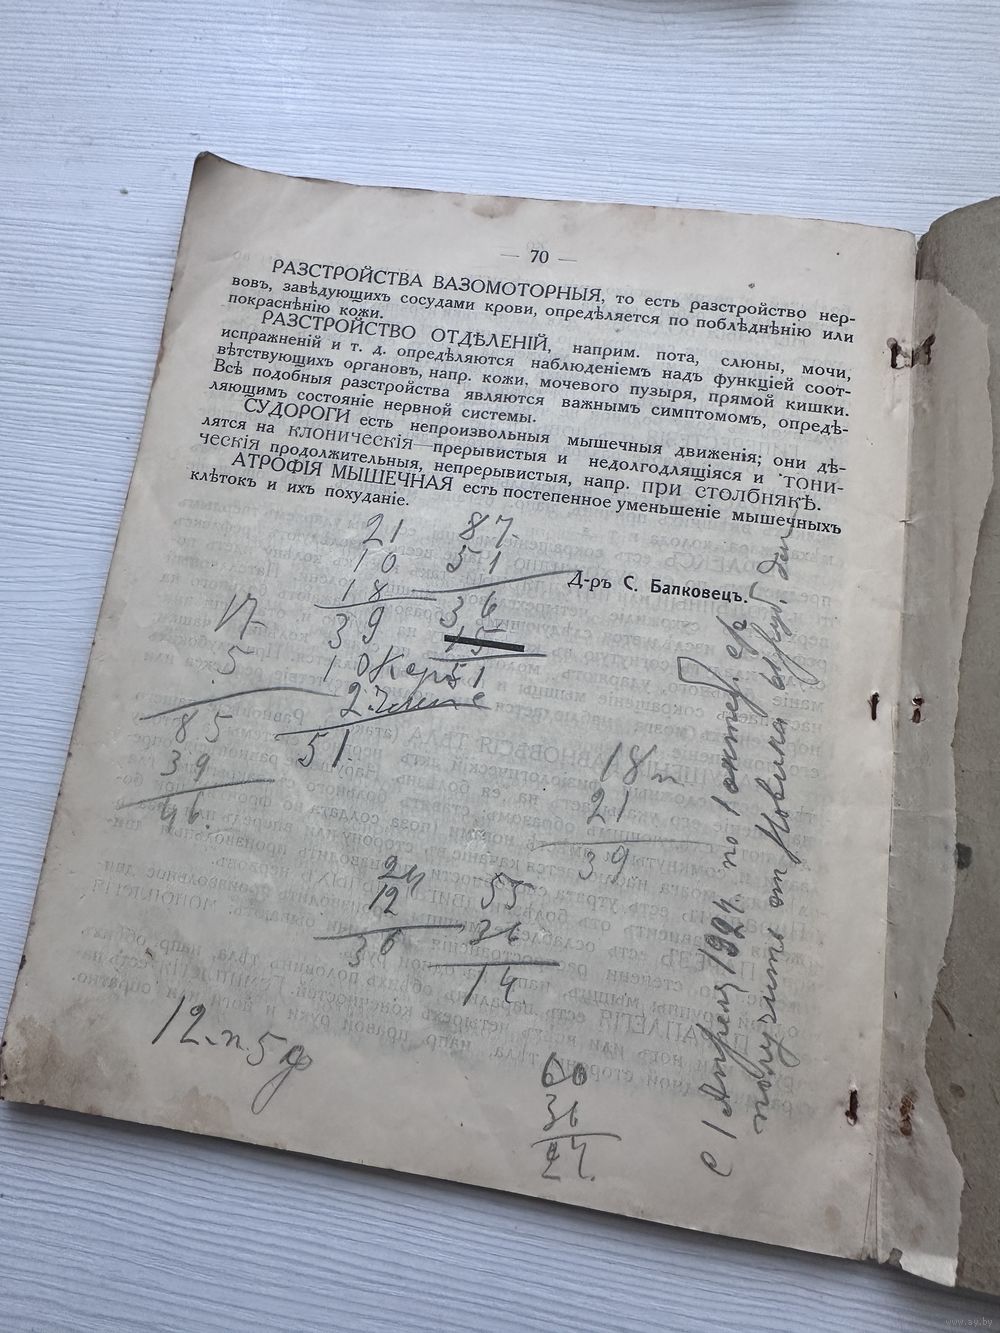 — 70 —
РАЗСТРОЙСТВА ВАЗОМОТОРНЫЯ, то есть разстройство нер-
вовъ, завѣдующихъ сосудами крови, опредѣляется по поблѣднѣнію или
покраснѣнію кожи.
РАЗСТРОЙСТВО ОТДѢЛЕНІЙ, наприм. пота, слюны, мочи,
испражненій и т. д. опредѣляются наблюденіемъ надъ функціей соот-
вѣтствующихъ органовъ, напр. кожи, мочевого пузыря, прямой кишки.
Всѣ подобныя разстройства являются важнымъ симптомомъ, опредѣ-
ляющимъ состояніе нервной системы.
СУДОРОГИ есть непроизвольныя мышечныя движенія; они дѣ-
лятся на КЛОНИЧЕСКІЯ—прерывистыя и недолгодлящіяся и ТОНИ-
ЧЕСКІЯ продолжительныя, непрерывистыя, напр. ПРИ СТОЛБНЯКѢ.
АТРОФІЯ МЫШЕЧНАЯ есть постепенное уменьшеніе мышечныхъ
клѣтокъ и ихъ похуданіе.
Д-ръ С. Балковецъ.
21
10
18
39
10
2
51.
87.
51
36
15
51
17
5
85
39
46.
18
21
39
24
12
36
36
14
12.п.5
60
36
24.
с 1 Апреля 192 по 1
получить от
www.ay.by